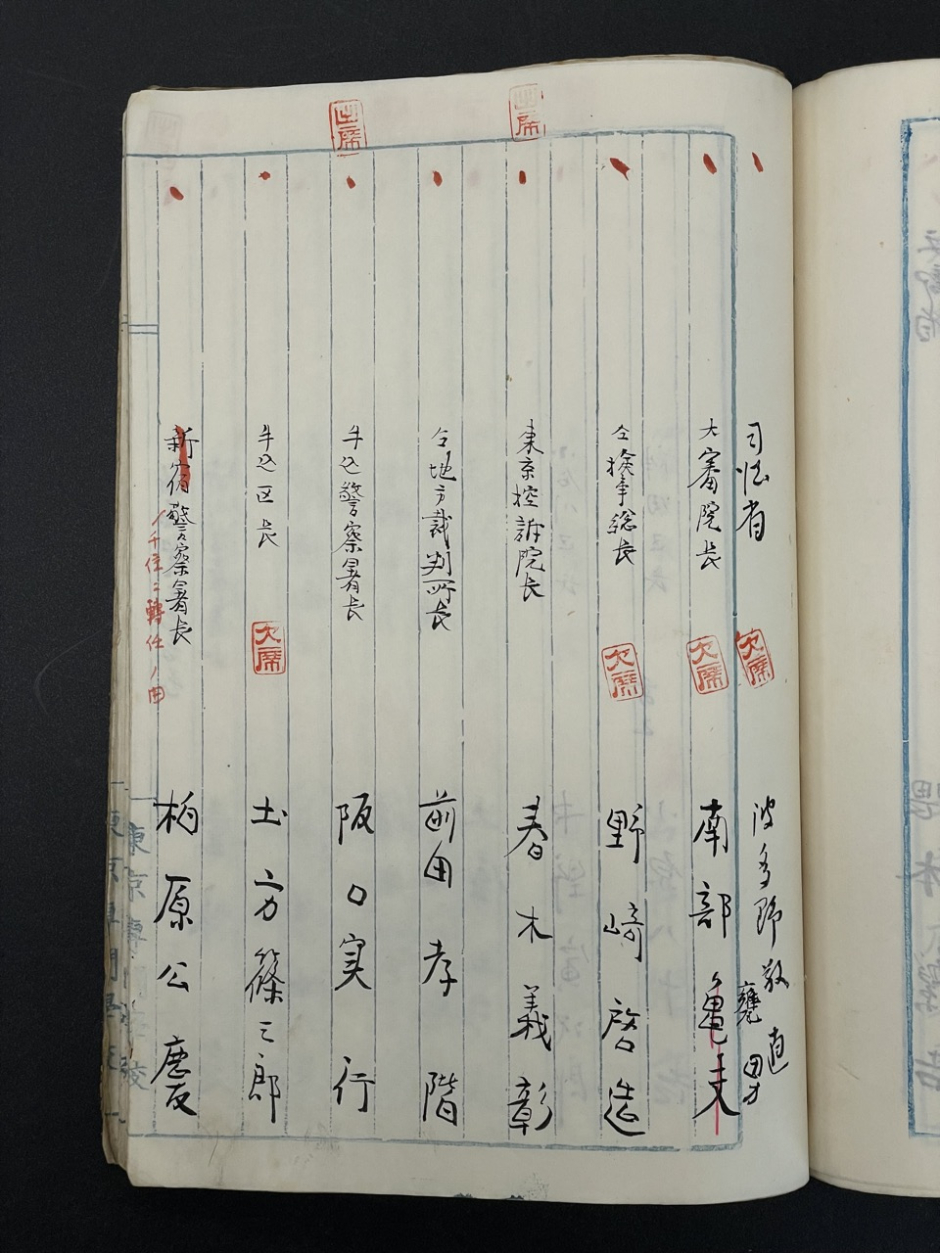 司法省 欠席 波多野敬直
大審院長 欠席 南部亀丈 甕男
仝検事総長 欠席 野崎啓造
出席 東京控訴院長 春木義彰
仝地方裁判所長 前田孝階
出席 牛込警察署長 阪口実行
牛込区長 欠席 土方篠三郎
新宿警察署長 柏原公慶
千住ニ轉任ノ由
東京専門学校